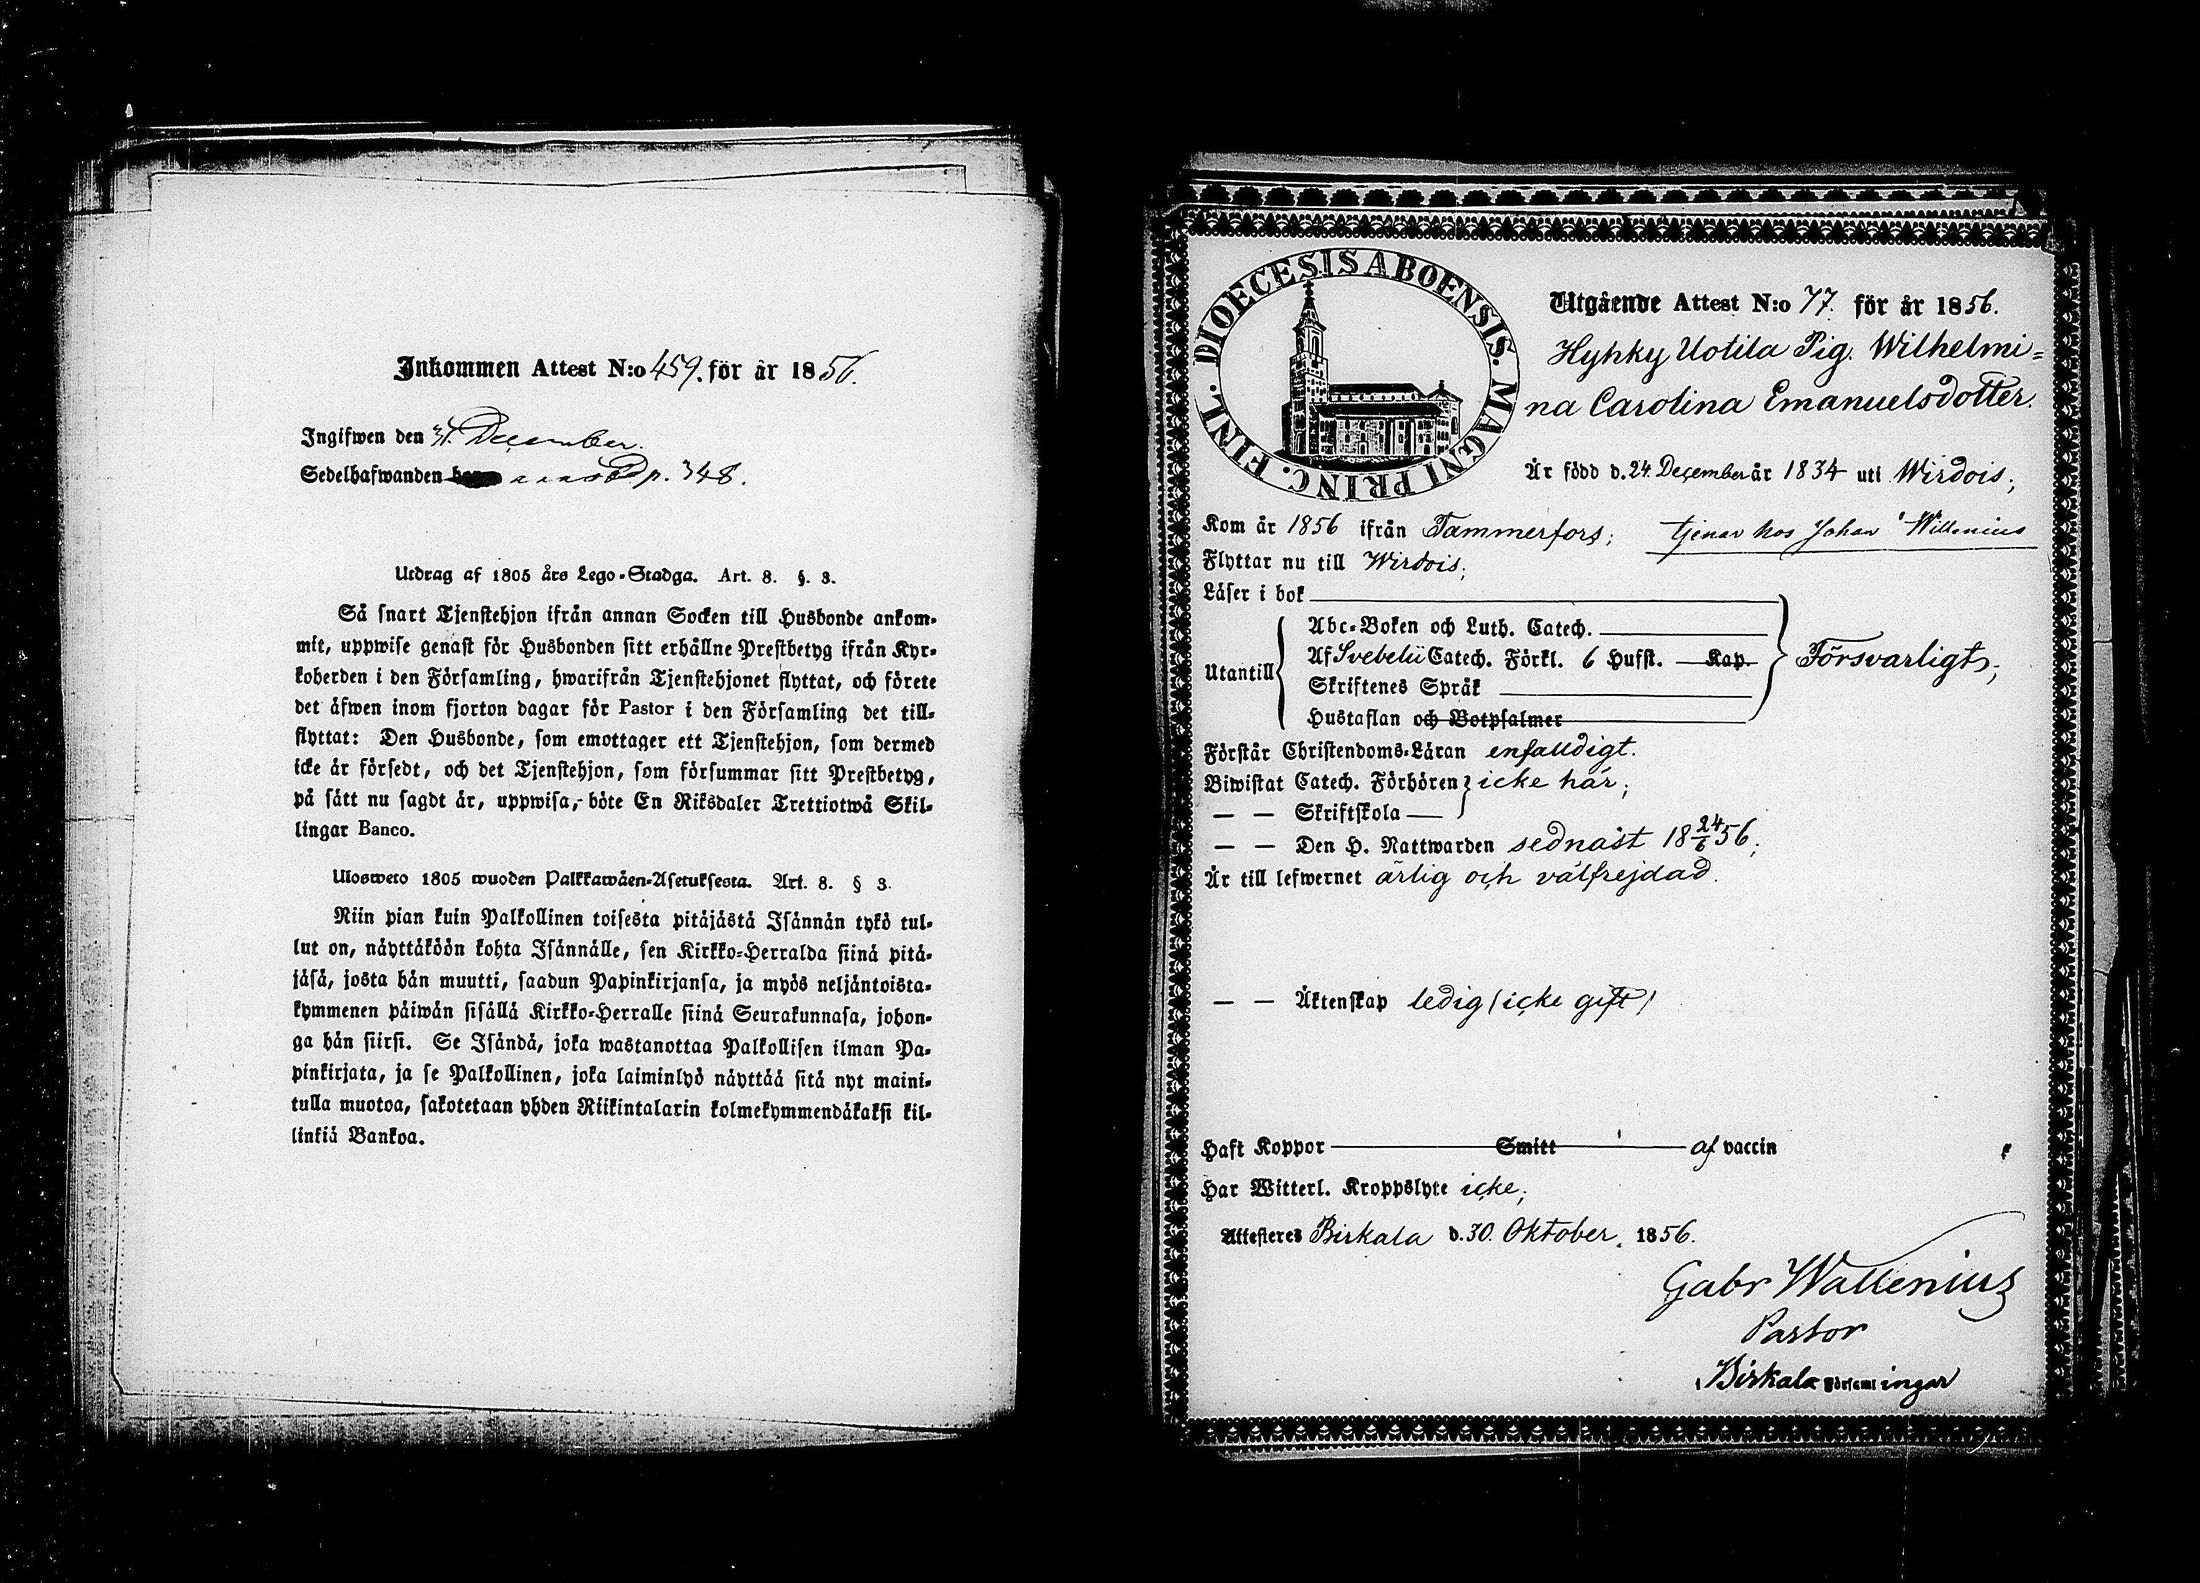 Inkommen Attest N:o 459. för år 1856.
Ingifwen den 31. December.
Sedelhafwanden p. 348.
Utdrag af 1805 års Lego-Stadga. Art. 8. §. 3.
Så snart Tjenstehjon ifrån annan Socken till Husbonde ankom-
mit, uppwise genast för Husbonden sitt erhållne Prestbetyg ifrån Kyr-
koherden i den Församling, hwarifrån Tjenstehjonet flyttat, och förete
det äfwen inom fjorton dagar för Pastor i den Församling det till-
flyttat: Den Husbonde, som emottager ett Tjenstehjon, som dermed
icke är försedt, och det Tjenstehjon, som försummar sitt Prestbetyg,
på sätt nu sagdt är, uppwisa, böte En Riksdaler Trettiotwå Skil-
lingar Banco.
Ulosweto 1805 wuoden Palkkawäen-Asetuksesta. Art. 8. § 3.
Niin pian kuin Palkollinen toisesta pitäjästä Isännän tykö tul-
lut on, näyttäköön kohta Isännälle, sen Kirkko-Herralda siinä pitä-
jäsä, josta hän muutti, saadun Papinkirjansa, ja myös neljäntoista-
kymmenen päiwän sisällä Kirkko-Herralle siinä Seurakunnasa, johon-
ga hän siirsi. Se Isändä, joka wastanottaa Palkollisen ilman Pa-
pinkirjata, ja se Palkollinen, joka laiminlyö näyttää sitä nyt maini-
tulla muotoa, sakotetaan yhden Riikintalarin kolmekymmendäkaksi kil-
linkiä Bankoa.
DIOECESIS ABOENSIS. MAGNI PRINC. FINL.
Utgående Attest N:o 77. för år 1856.
Hyhky Uotila Pig. Wilhelmi=
na Carolina Emanuelsdotter.
Är född d. 24 December år 1834 uti Wirdois;
Kom år 1856 ifrån Tammerfors; tjenar hos Johan Willenius
Flyttar nu till Wirdois;
Läser i bok
Utantill
Abc-Boken och Luth. Catech.
Af Svebelii Catech. Förkl. 6 Hufst. Kap. Försvarligt;
Skriftenes Språk
Hustaflan och Botpsalmer
Förstår Christendoms-Läran enfalldigt.
Biwistat Catech. Förhören icke här;
— — Skriftskola —
— — Den H. Nattwarden sednast 18 24/6 56;
Är till lefwernet ärlig och välfrejdad.
— — Äktenskap ledig (icke gift)
Haft Koppor Smitt af vaccin
Har Witterl. Kroppslyte icke;
Attesteres Birkala d. 30. Oktober. 1856.
Gabr Wallenius
Pastor
i Birkala Församlingar